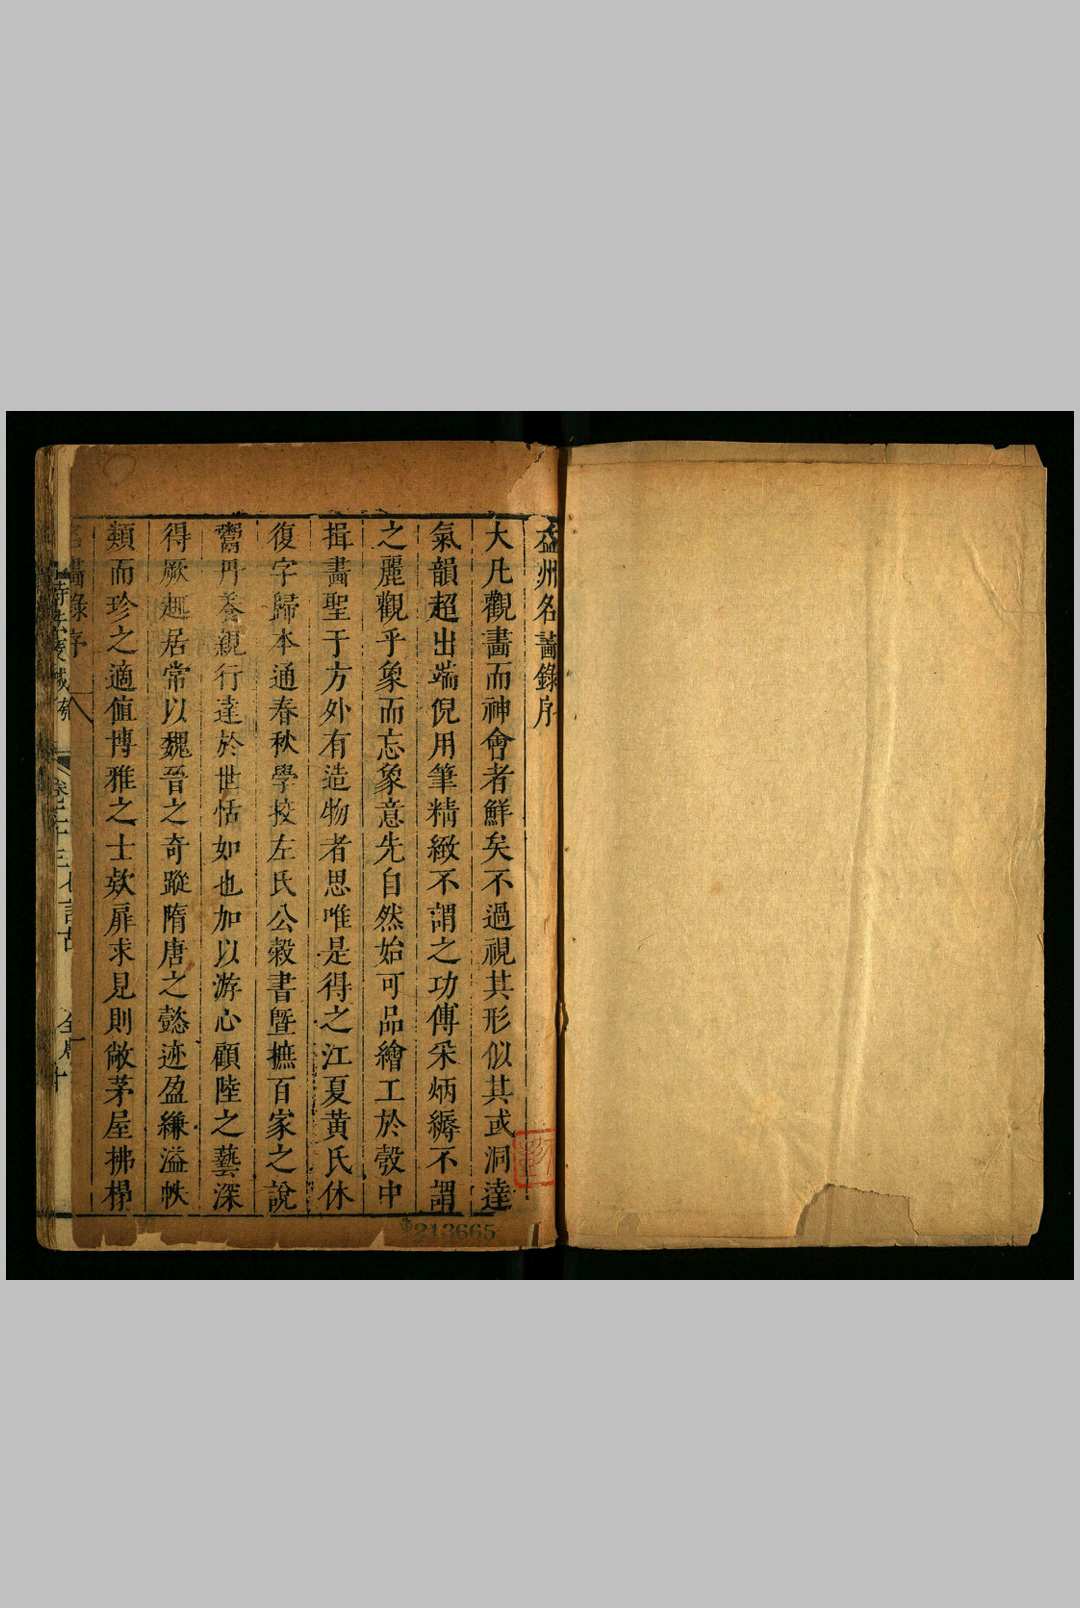 益州名畵錄序
大凡觀畵而神會者鮮矣不過視其形似其或洞達
氣韻超出端倪用筆精緻不謂之功傅采炳縟不謂
之麗觀乎象而忘象意先自然始可品繪工於彀中
揖畵聖于方外有造物者思唯是得之江夏黃氏休
復字歸本通春秋學挍左氏公穀書曁摭百家之說
鬻丹養親行達於世恬如也加以游心顧陸之藝深
得厥趣居常以魏晉之奇蹤隋唐之懿迹盈縑溢帙
類而珍之適値博雅之士欵扉求見則敞茅屋拂榻
名畵錄序
213665